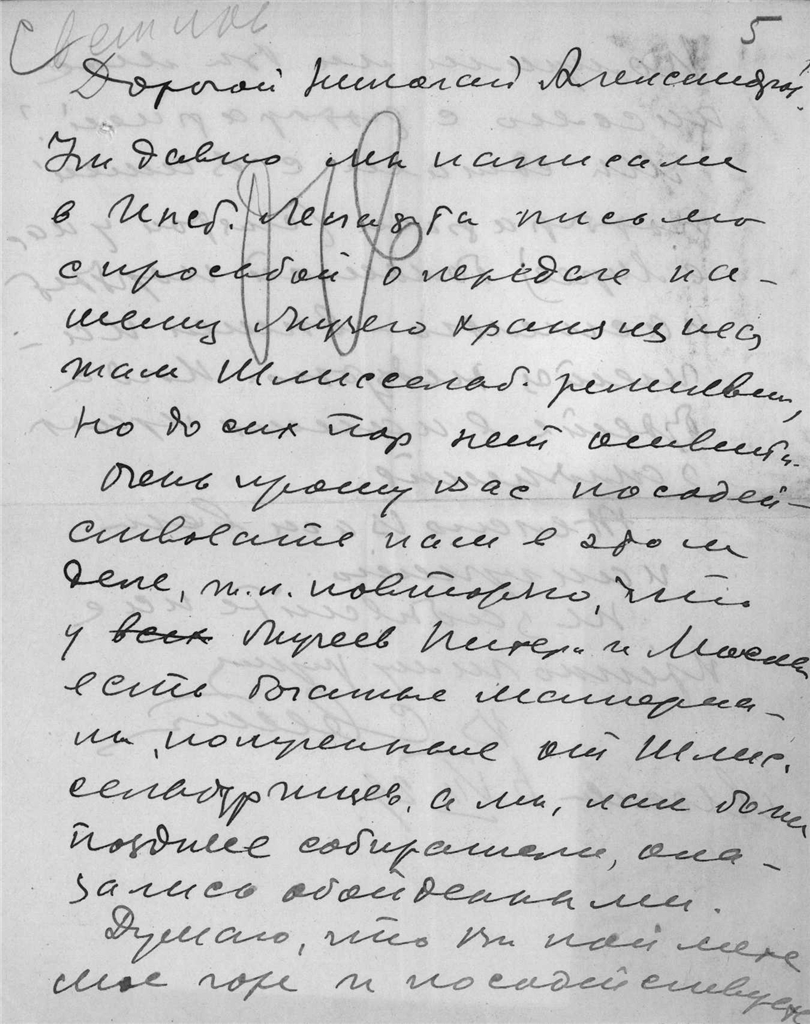 5
Дорогой Николай Александров.
Уж давно мы написали
в Инст. письмо
с просьбой о передаче на-
шему Музею хранящихся
там Шлиссельб. реликвий,
но до сих пор нет ответа.
Очень прошу Вас посодей-
ствовать нам в этом
деле, т.к. повторяю, что
у всех Музеев Питера и Москвы
есть богатые материа-
лы, полученные от Шлис-
сельбуржцев, а мы, как более
поздние собиратели, ока-
зались обойденными.
Думаю, что Вы поймете
мое горе и посодействуете